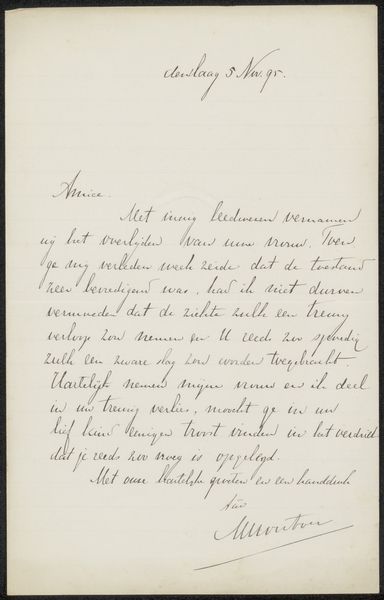 den Haag 5 Nov. 95.
Amice.
Met innig leedwezen vernamen
wij het overlijden van uwe vrouw. Toen
ge mij verleden week zeide dat de toestand
zeer bevredigend was, had ik niet durven
vermoeden dat de ziekte zulk een treurig
verloop zou nemen en U reeds zoo spoedig
zulk een zware slag zou worden toegebracht.
Hartelijk nemen mijne vrouw en ik deel
in uw treurig verlies, mocht ge in uw
lief kind eenigen troost vinden in het verdriet
dat je reeds zoo vroeg is opgelegd.
Met onze hartelijke groeten en een handdruk
tàv
MMouton